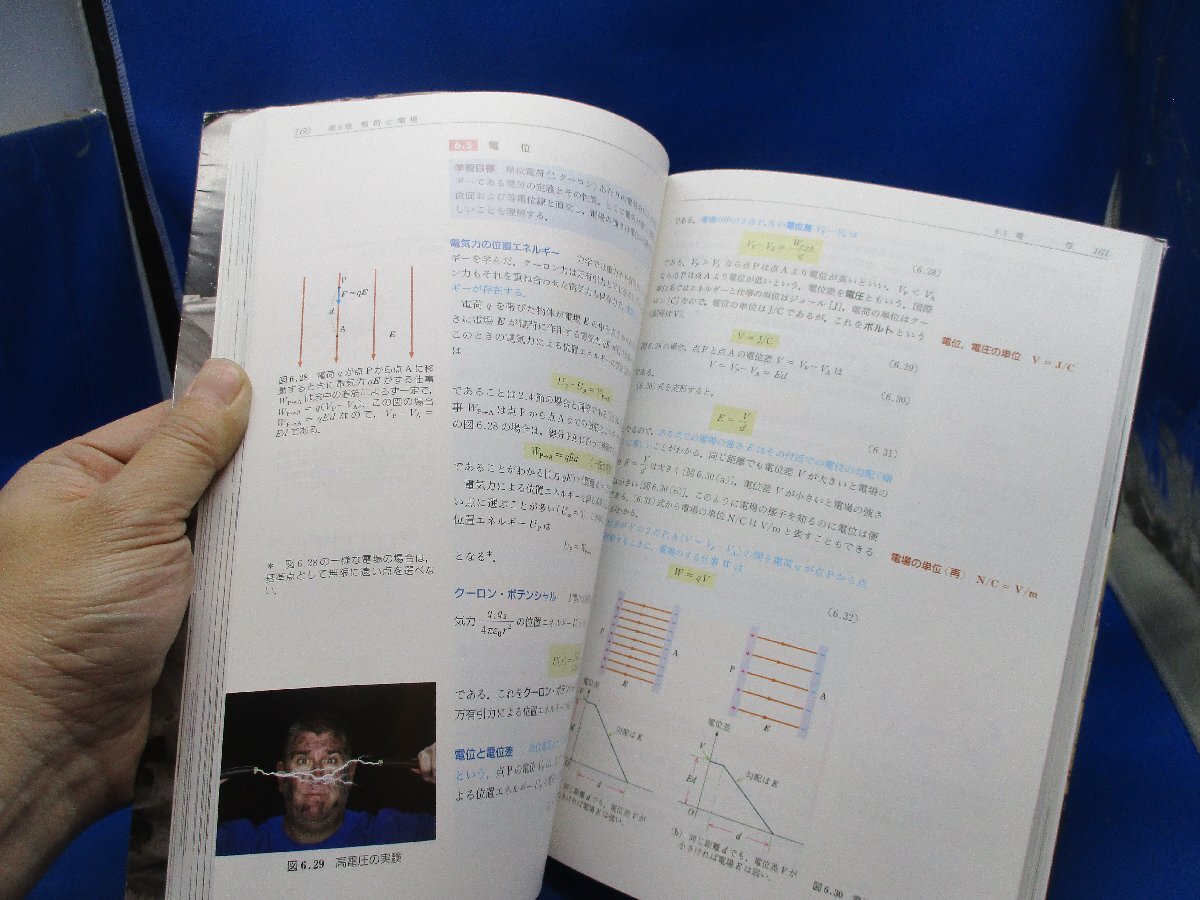 160 第6章 電荷と電場
6.5 電 位
学習目標 単位電荷(1クーロン)あたりの電気力
ギーである電位の定義とその性質,とくに電気力
位面および等電位線と直交し,電場の強さは電位の
しいことを理解する.
電気力の位置エネルギー
ギーを学んだ.クーロン力は万有引力と
ン力もそれを重ね合わせた電気力も
ギーが存在する.
電荷 q を帯びた物体が電場 E の中を
さに電場 E が電荷に作用する電気力 qE
このときの電気力による位置エネルギー
は
U_P − U_A = W_P→A
であることは2.4節の場合と同様である
事 W_P→A は点Pから点Aまでの
の図6.28の場合は,線分PAに
W_P→A = qEd
であることがわかる
電気力による位置エネルギー
い点に選ぶことが多い
位置エネルギー U_P は
U_P = W_P→∞
となる*.
クーロン・ポテンシャル
気力 q₁q₂/4πε₀r² の位置エネルギー
U(r) =
である.これをクーロン・ポテン
万有引力による位置エネルギー
電位と電位差 単位電荷
という.点Pの電位 V_P
よる位置エネルギー U_P
P
F = qE
d
A
E
図6.28 電荷 q が点Pから点Aに移
動するときに電気力 qE がする仕事
W_P→A は途中の経路によらず一定で,
W_P→A = q(V_P − V_A).この図の場合
W_P→A = qEd なので,V_P − V_A =
Ed である.
* 図6.28の一様な電場の場合は,
基準点として無限に遠い点を選べな
い.
図6.29 高電圧の実験
6.5 電 位 161
である.電場の中の2点P,Aの電位差 V_P − V_A は
V_P − V_A = W_P→A/q (6.28)
である.V_P > V_A なら点Pは点Aより電位が高いといい,V_P < V_A
なら点Pは点Aより電位が低いという.電位差を電圧ともいう.国際
単位系ではエネルギーと仕事の単位はジュール[J],電荷の単位はクー
ロン[C]なので,電位の単位はJ/Cであるが,これをボルトという
(記号はV).
電位,電圧の単位 V = J/C
V = J/C (6.29)
図6.28の場合,点Pと点Aの電位差 V = V_P − V_A は
V = V_P − V_A = Ed (6.30)
である.
(6.30)式を変形すると,
E = V/d (6.31)
となるので,ある点での電場の強さ E はその付近での電位の勾配(傾
に等しいことがわかる.同じ距離でも電位差 V が大きいと電場の
E = V/d は大きく[図6.30(a)],電位差 V が小さいと電場の強さ
は小さい[図6.30(b)].このように電場の様子を知るのに電位は便
である.(6.31)式から電場の単位N/CはV/mと表すこともできる
がわかる.
電場の単位(再) N/C = V/m
電位差が V の2点P,A(V = V_P − V_A)の間を電荷 q が点Pから点
移動するときに,電場のする仕事 W は
W = qV (6.32)
P
A
E
電位差
勾配は E
d
同じ距離 d でも,電位差 V が
大きければ電場 E は強い.
P
A
E
電位差
V
Ed
勾配は E
O
d
(b) 同じ距離 d でも,電位差 V が
小さければ電場 E は弱い.
図6.30